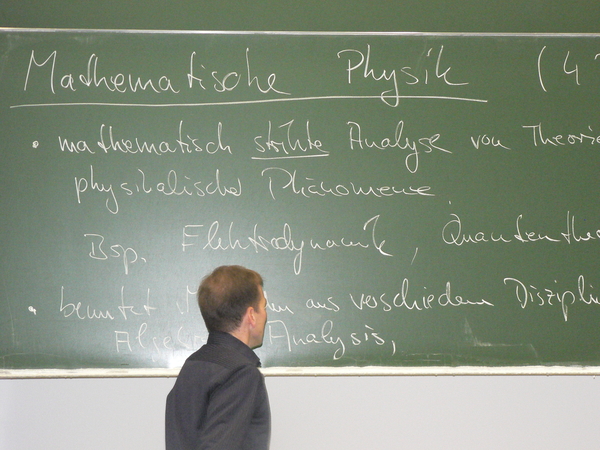 Mathematische Physik (4
• mathematisch strikte Analyse von Theorie
physikalischer Phänomene
Bsp. Elektrodynamik, Quantenthe
• benutzt aus verschieden Diszipli
Analysis,